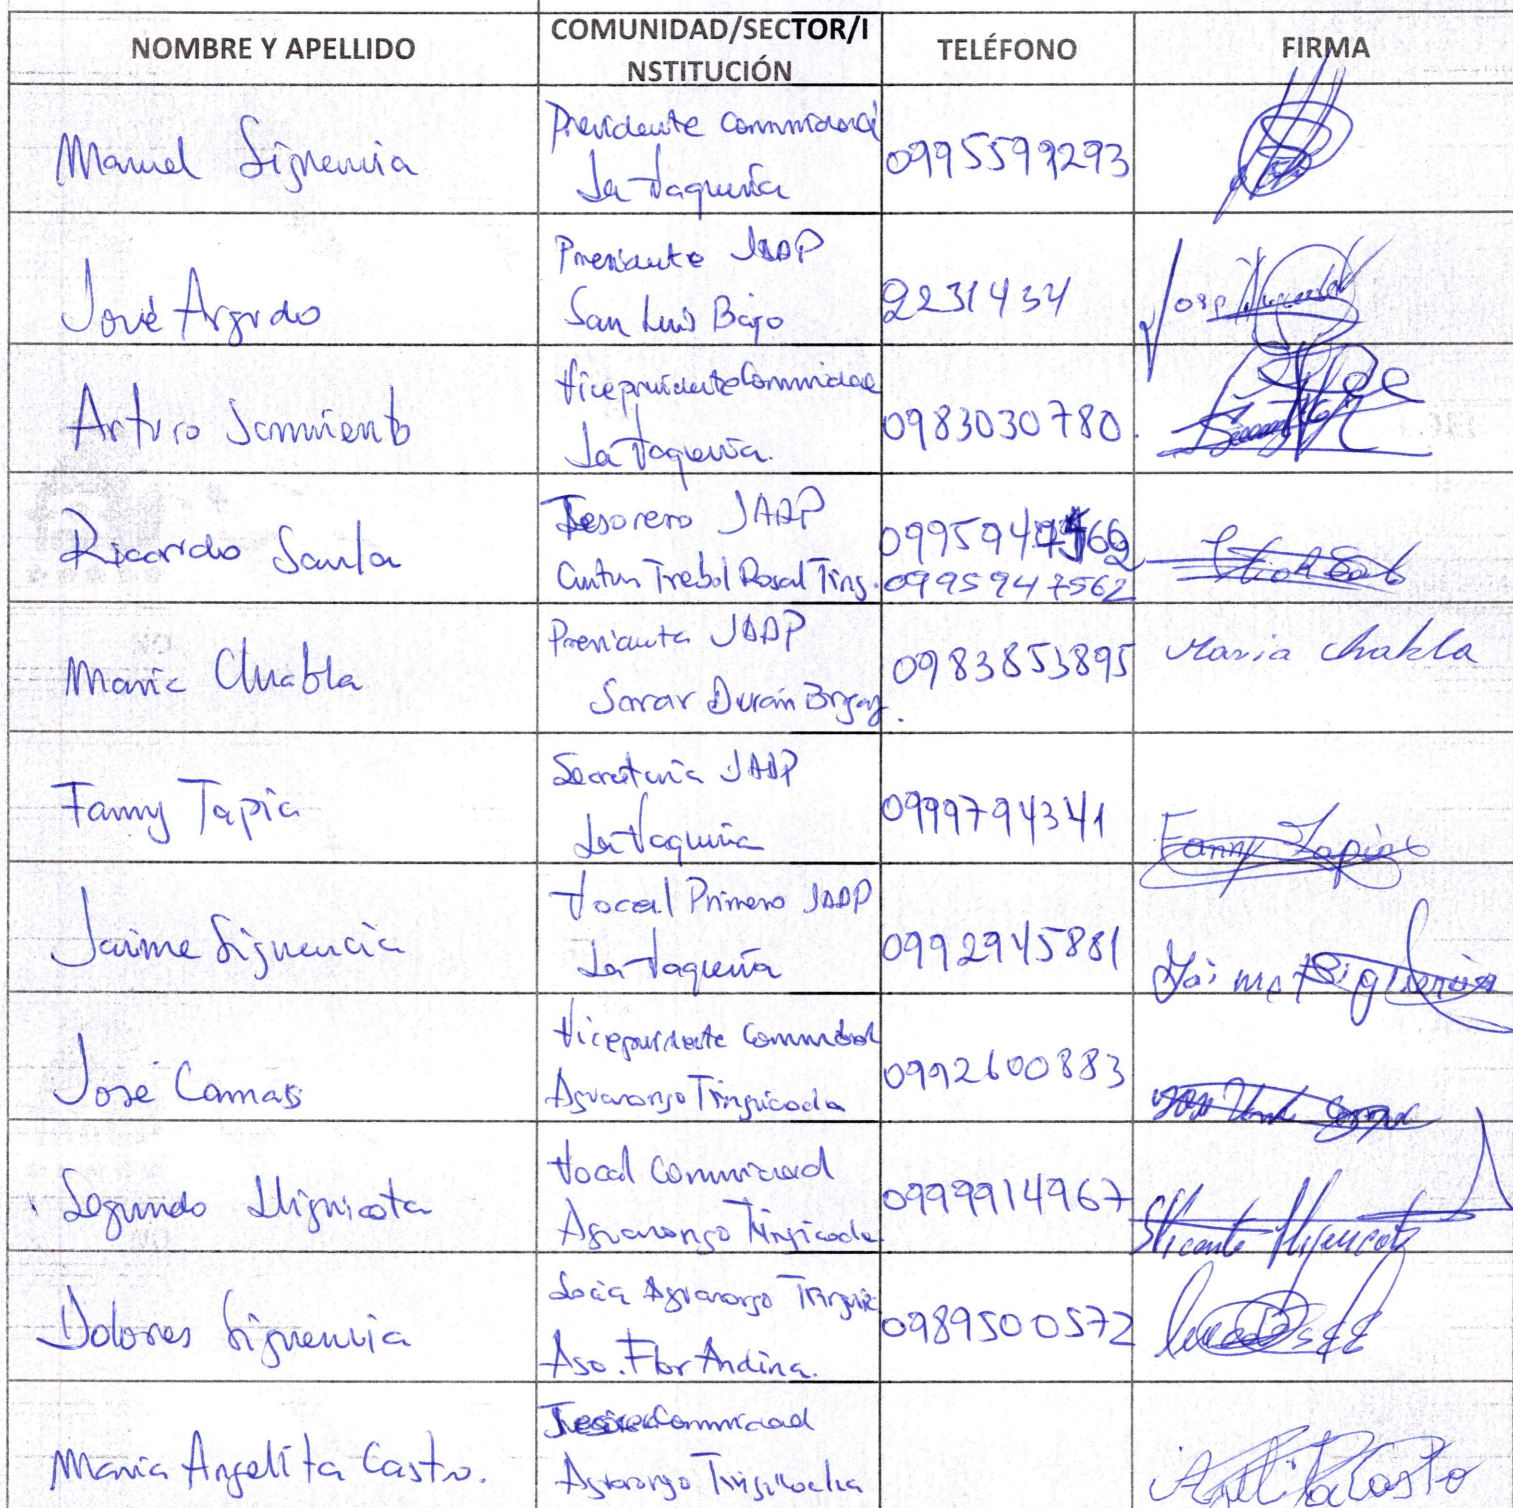 NOMBRE Y APELLIDO
COMUNIDAD/SECTOR/I
NSTITUCIÓN
TELÉFONO
FIRMA
Manuel Siguencia
Presidente Comunidad
La Vaquería
0995599293
José Argudo
Presidente JAAP
San Luis Bajo
2231434
José
Arturo Sarmiento
Vicepresidente Comunidad
La Vaquería.
0983030780.
Ricardo
Tesorero JAAP
Trebol Rosal Ting.
0995947562
María Chabla
Presidenta JAAP
Durán
0983853895
Maria Chabla
Fanny Tapia
Secretaria JAAP
La Vaquería
0999794341
Fanny Tapia
Jaime Siguencia
Vocal Primero JAAP
La Vaquería
0992945881
Jaime Siguencia
José Camas
Vicepresidente Comunidad
Aguarongo Tringicocha
0992600883
Segundo Llignicota
Vocal Comunidad
Aguarongo Tringicocha
0999914967
Dolores Siguencia
Socia Aguarongo
Aso. Flor Andina.
0989500572
María Angelita Castro.
Comunidad
Aguarongo Tringicocha
Castro